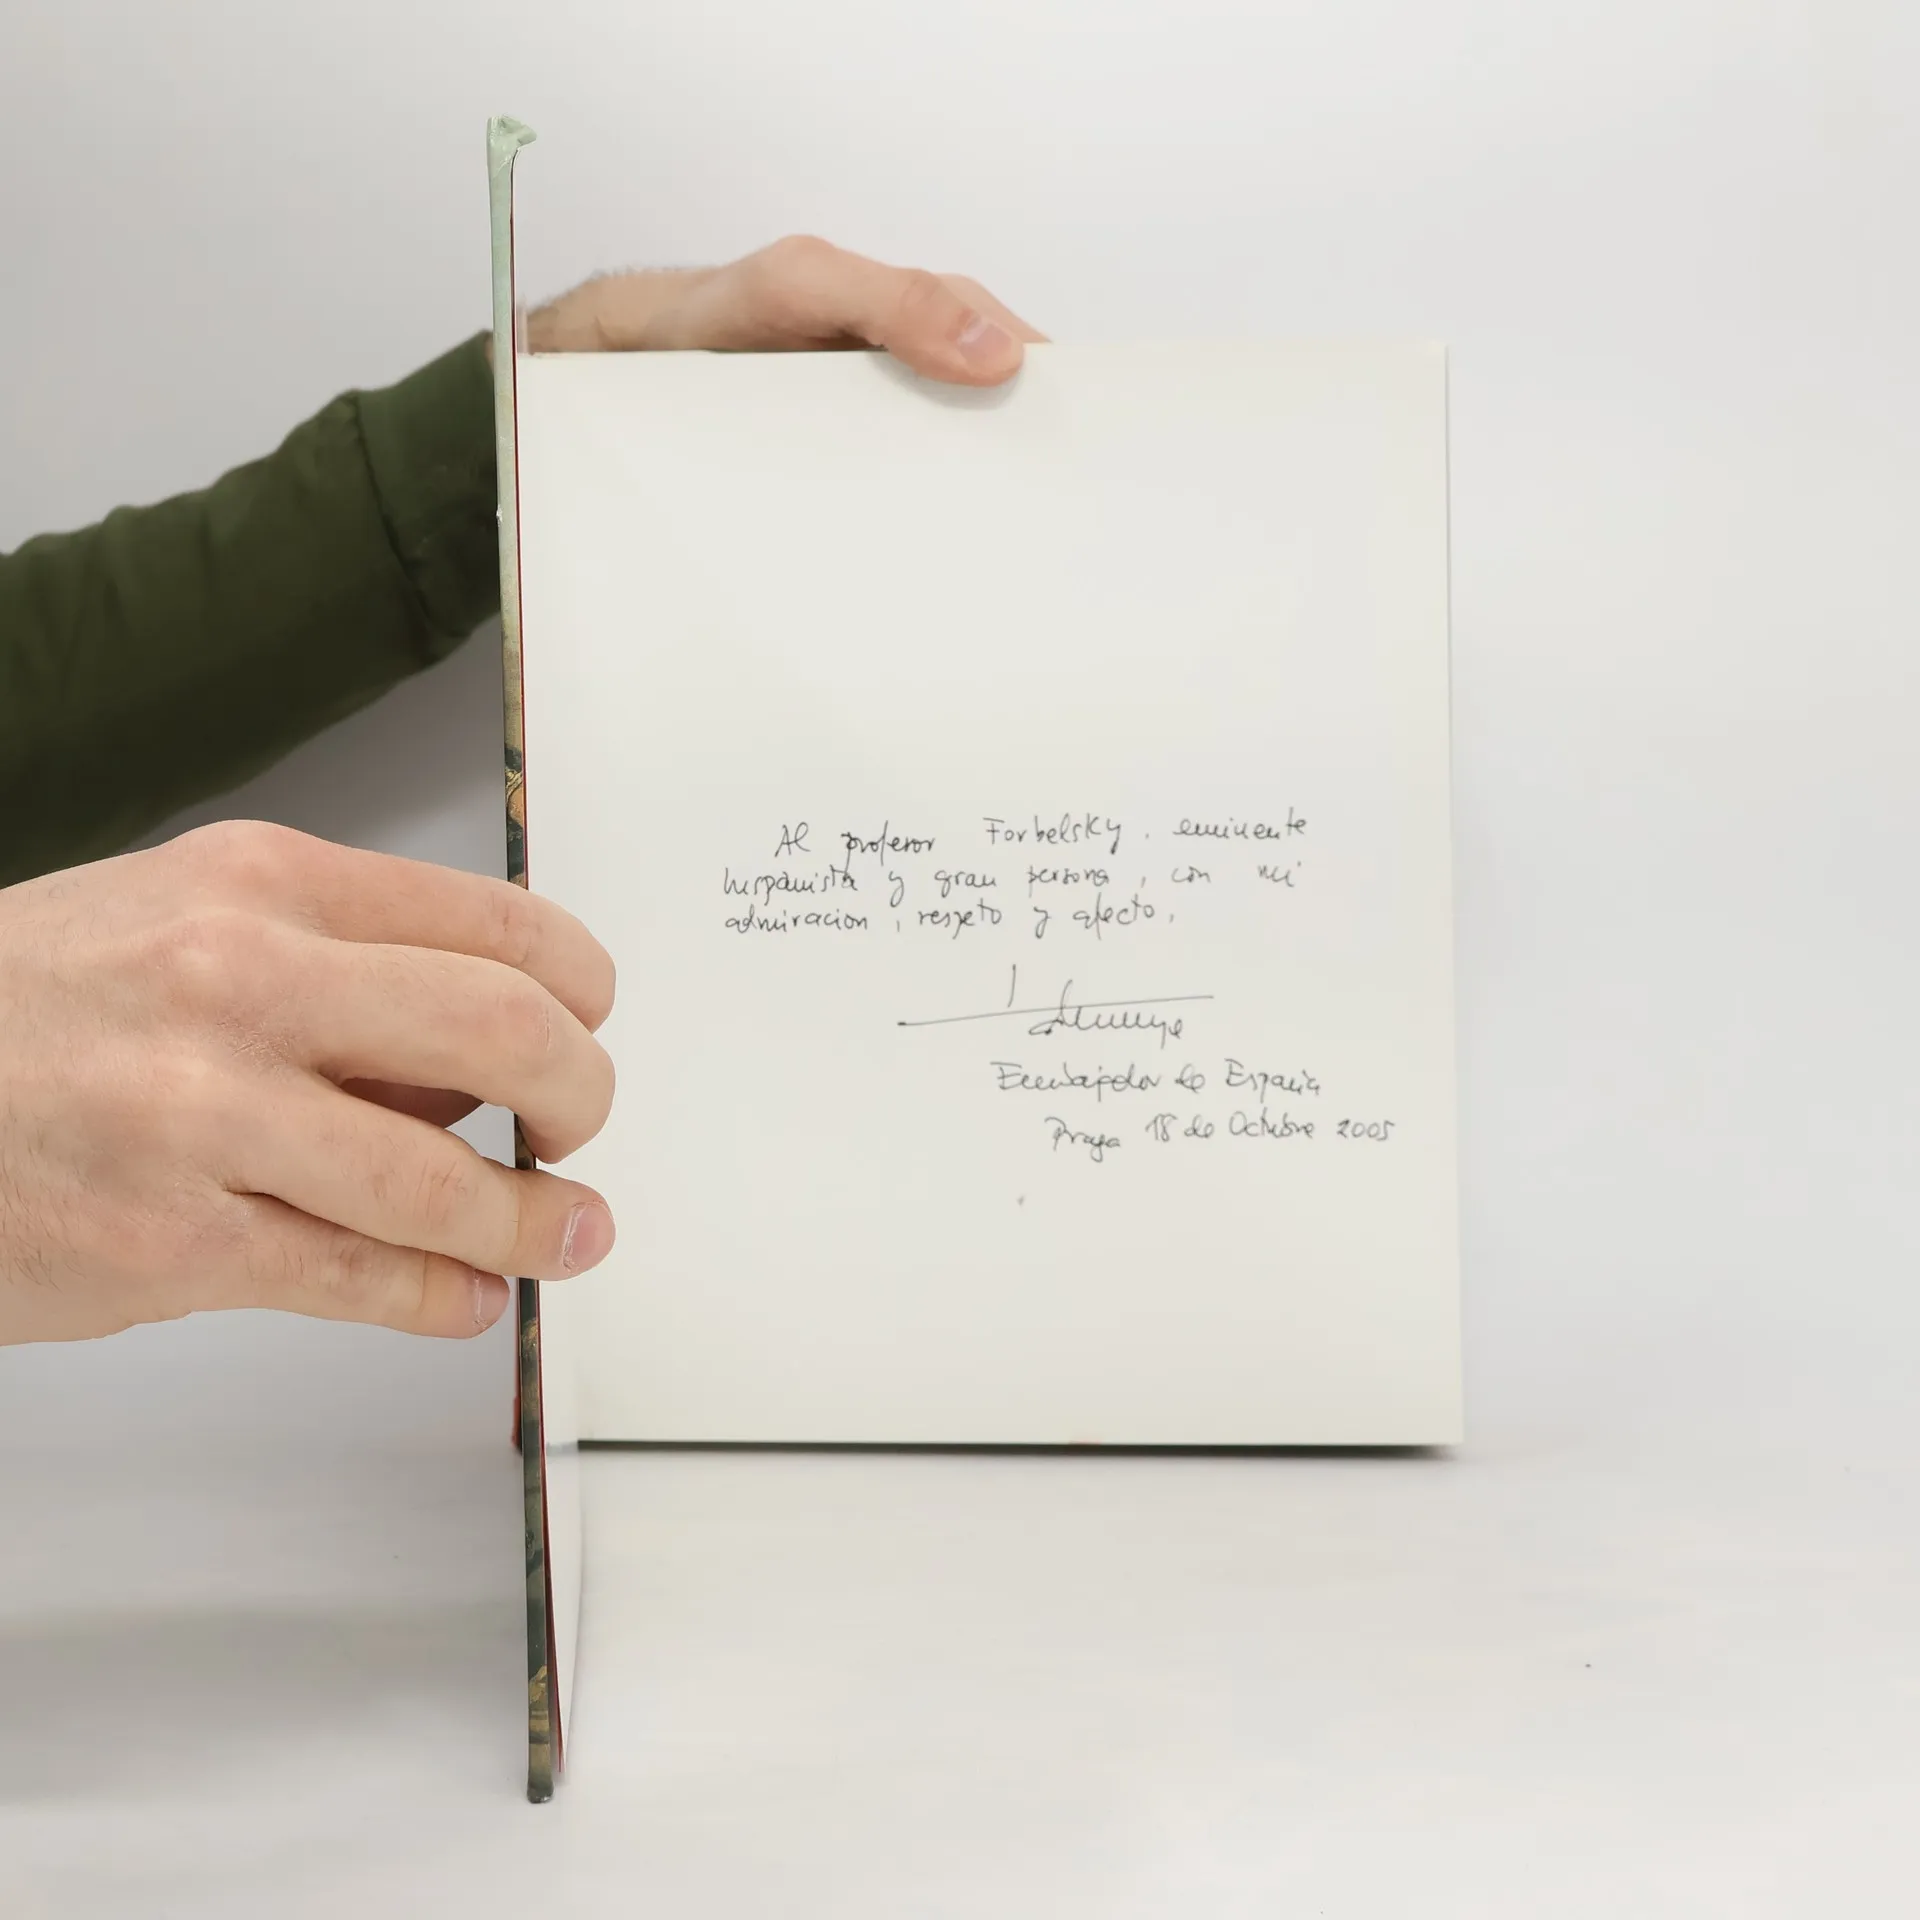 Al profesor Forbelsky, eminente
hispanista y gran persona, con mi
admiracion, respeto y afecto,
Embajador de España
Praga 18 de Octubre 2005